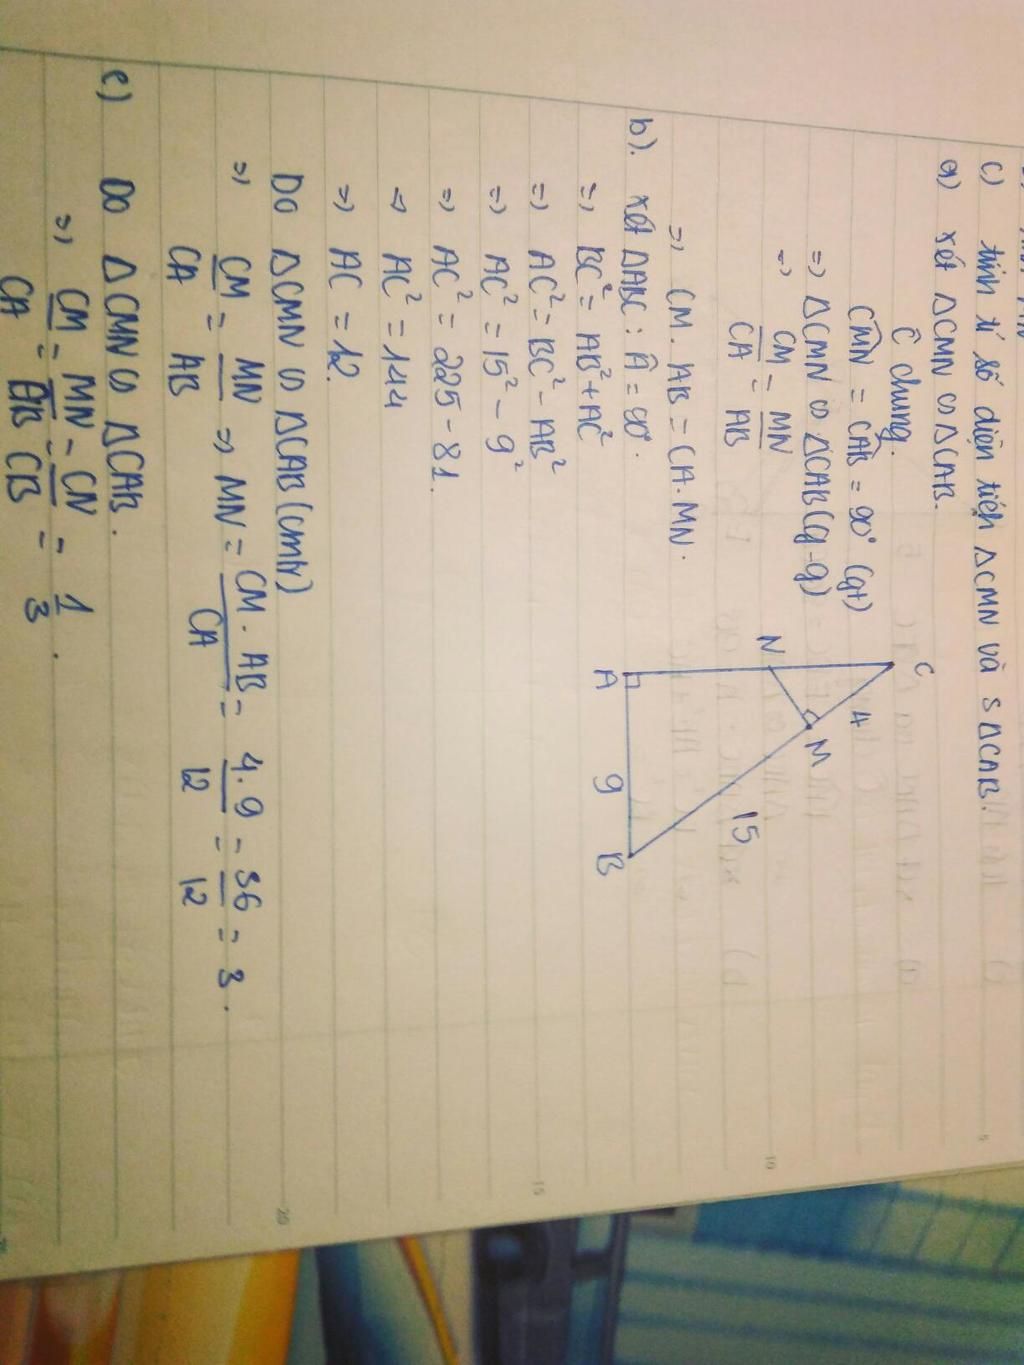 c) tính tỉ số diện tích △CMN và S△CAB.
a) xét △CMN ∽ △CAB.
Ĉ chung.
CMN = CAB = 90° (gt)
=> △CMN ∽ △CAB (g-g)
=> CM/CA = MN/AB
=> CM . AB = CA . MN.
C
4
N
M
15
A
9
B
b). xét △ABC : Â = 90°.
=> BC² = AB² + AC²
=> AC² = BC² - AB²
=> AC² = 15² - 9²
=> AC² = 225 - 81.
=> AC² = 144
=> AC = 12.
Do △CMN ∽ △CAB (cmtr)
=> CM/CA = MN/AB => MN = CM . AB/CA = 4.9/12 = 36/12 = 3.
c) Do △CMN ∽ △CAB.
=> CM/CA = MN/AB = CN/CB = 1/3.
5
10
15
20